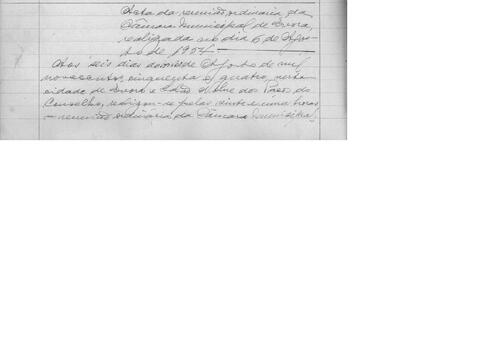 Acta da reunião ordinária da
Câmara Municipal de Evora,
realizada no dia 6 de Agos-
to de 1954
Aos seis dias do mês de Agosto de mil
novecentos cinquenta e quatro, nesta
cidade de Evora e Salão Nobre dos Paços do
Concelho, realizou-se pelas vinte e uma horas
a reunião ordinária da Câmara Municipal,